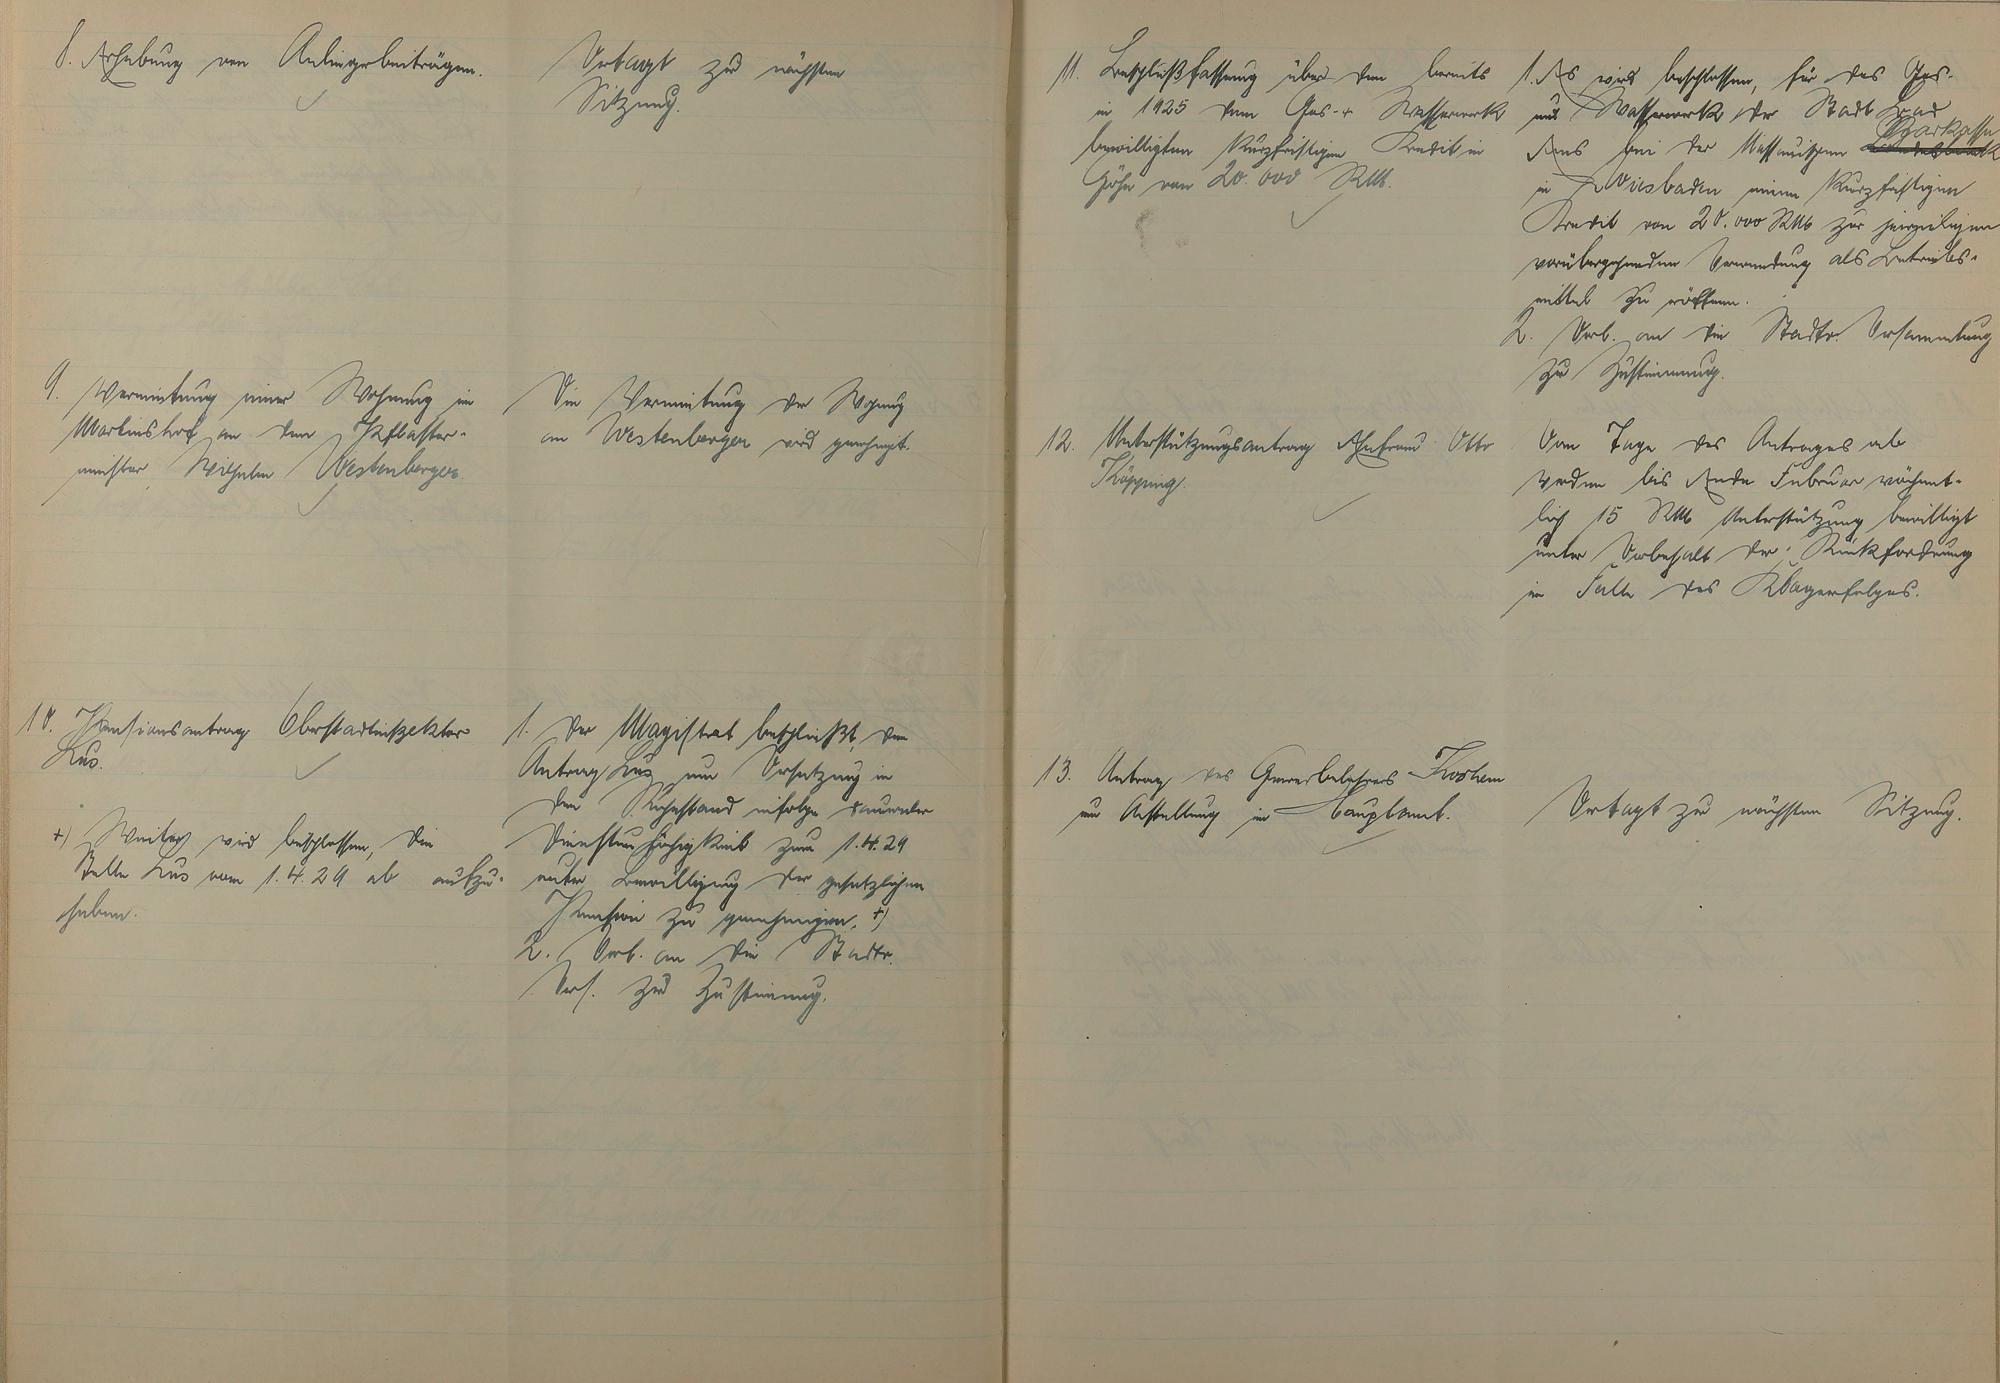 8. Erhebung von Anliegerbeiträgen.
Vertagt zur nächsten
Sitzung.
9. Vermietung einer Wohnung im
Martinshof an den Pflaster-
meister Wilhelm Westenberger.
Die Vermietung der Wohnung
an Westenberger wird genehmigt.
10. Pensionsantrag Oberstadtinspektor
Lus.
+) Weiter wird beschlossen, die
Stelle Lus vom 1.4.29 ab aufzu-
heben.
1. Der Magistrat beschließt, den
Antrag Lus um Versetzung in
den Ruhestand infolge dauernder
Dienstunfähigkeit zum 1.4.29
unter Bewilligung der gesetzlichen
Pension zu genehmigen. +)
2. Vorl. an die Stadtv.
Vers. zur Zustimmung.
11. Beschlußfassung über den bereits
in 1925 dem Gas- + Wasserwerk
bewilligten kurzfristigen Kredit in
Höhe von 20.000 RM.
1. Es wird beschlossen, für das Gas-
und Wasserwerk der Stadt Bad
Sparkasse
Ems bei der Nassauischen Landesbank
in Wiesbaden einen kurzfristigen
Kredit von 20.000 RM zur jeweiligen
vorübergehenden Verwendung als Betriebs-
mittel zu eröffnen.
2. Vorl. an die Stadtv. Versammlung
zur Zustimmung.
12. Unterstützungsantrag Ehefrau Otto
Köpping.
Vom Tage des Antrages ab
werden bis Ende Februar wöchent-
lich 15 RM Unterstützung bewilligt
unter Vorbehalt der Rückforderung
im Falle des Klageerfolges.
13. Antrag des Gewerbelehrers
um Anstellung im Hauptamt.
Vertagt zur nächsten Sitzung.